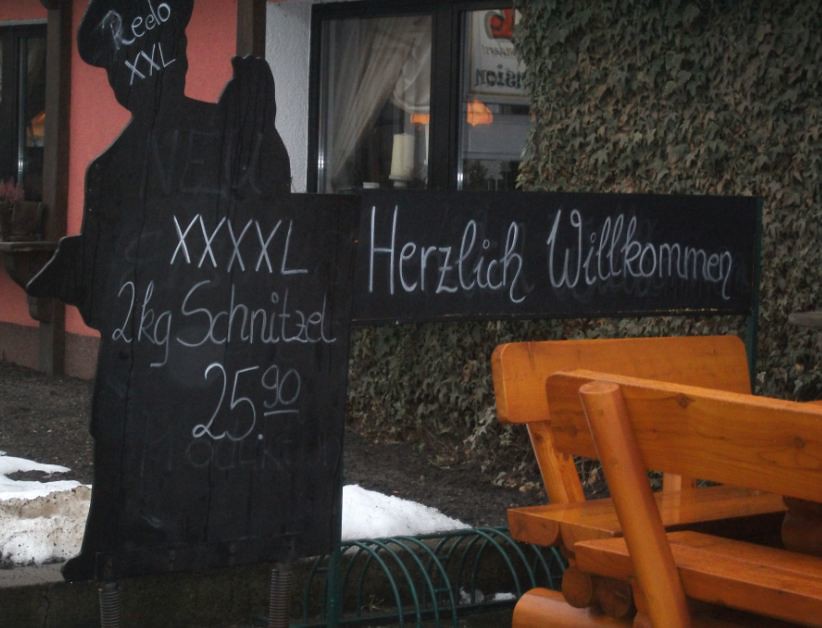 Reelo
XXL
XXXXL
2kg Schnitzel
25.90
Herzlich Willkommen
NEU